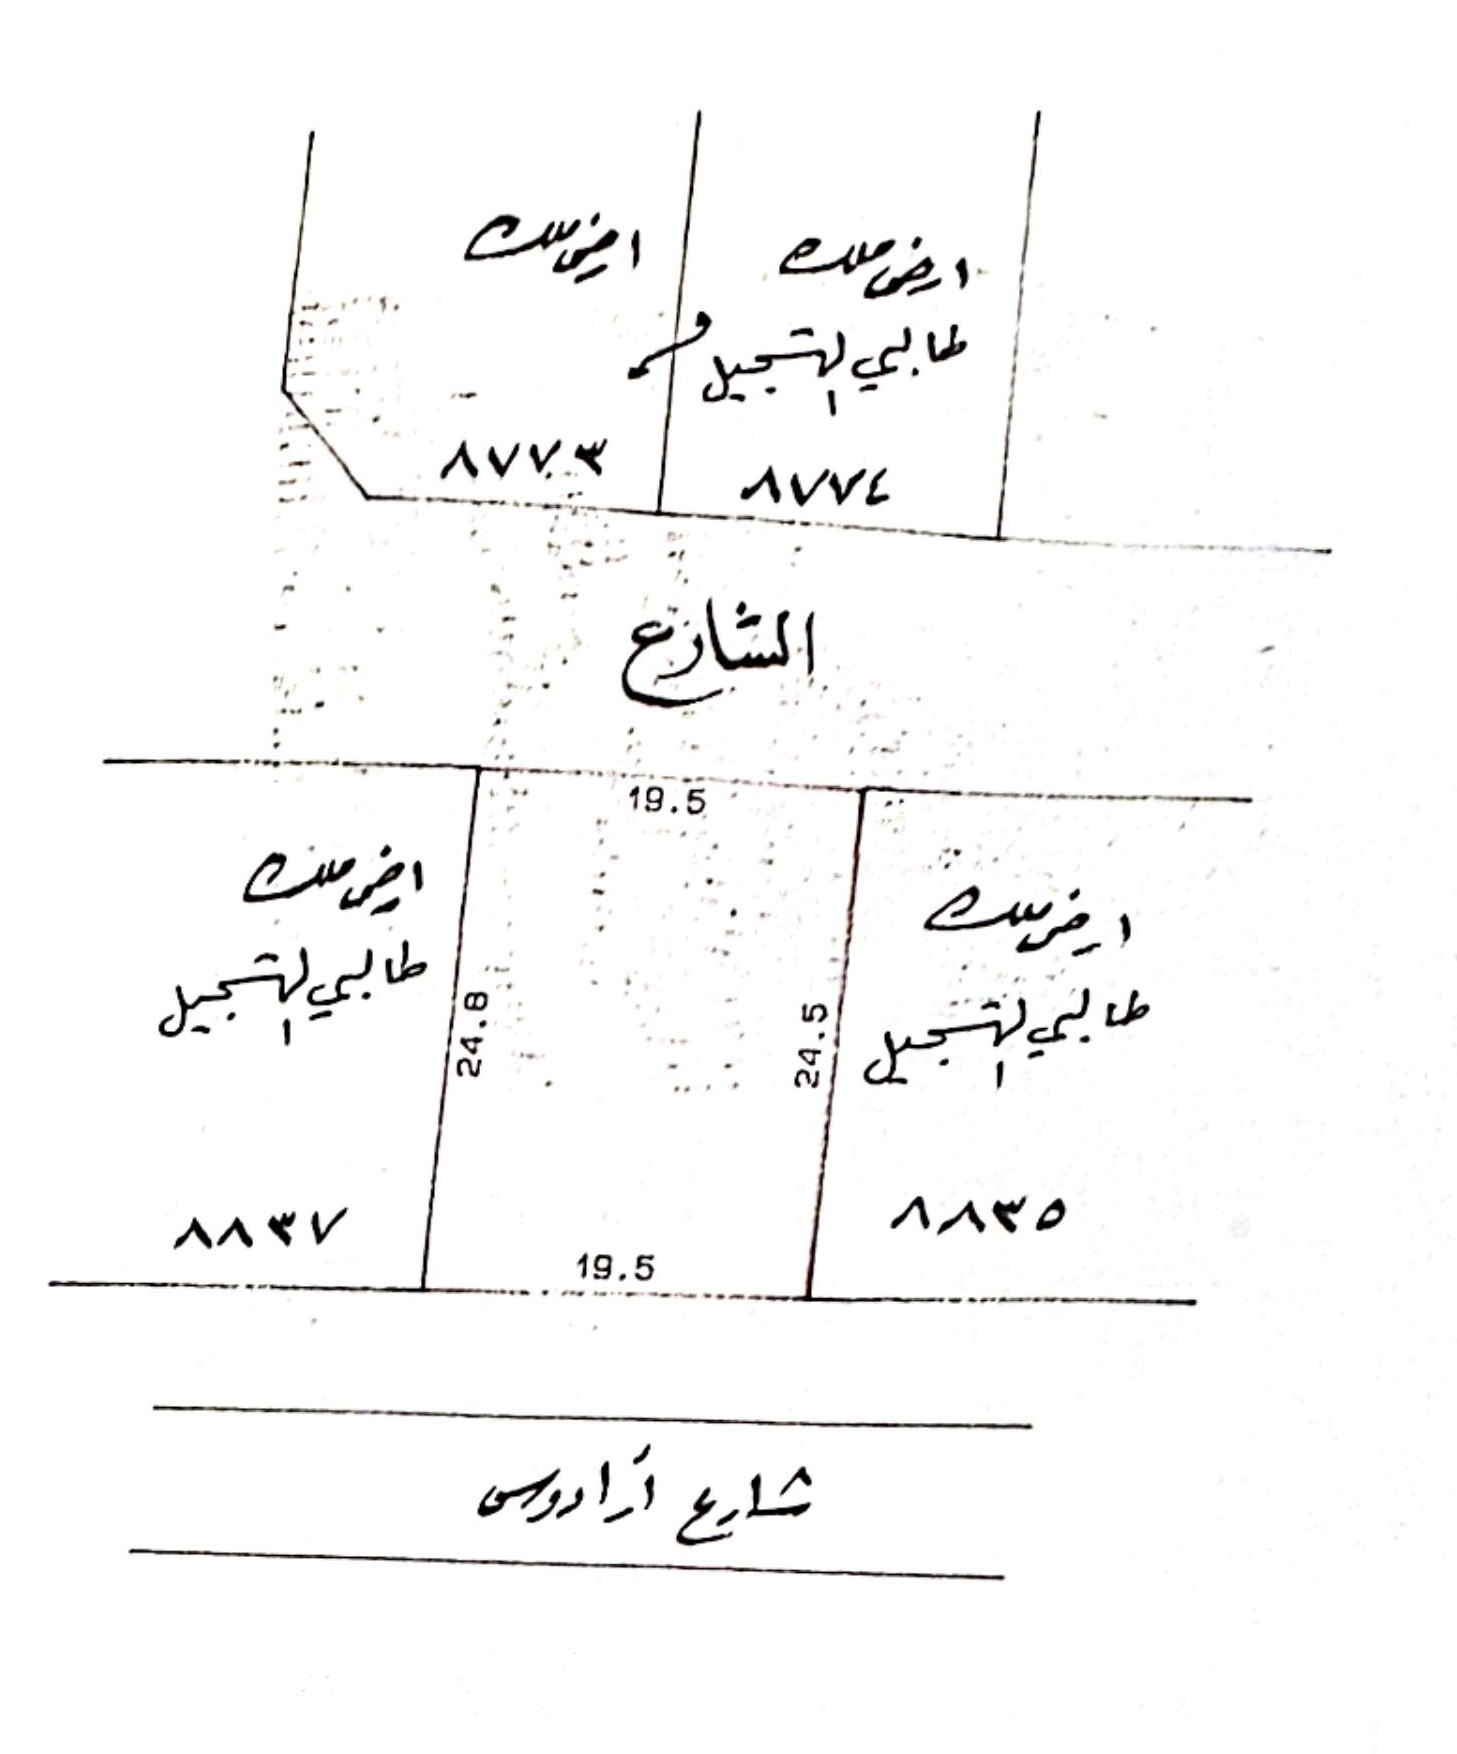 ارض ملك
ارض ملك
طالبي التسجيل
٨٧٧٣
٨٧٧٤
الشارع
19.5
ارض ملك
طالبي التسجيل
24.8
24.5
ارض ملك
طالبي التسجيل
٨٨٣٧
٨٨٣٥
19.5
شارع